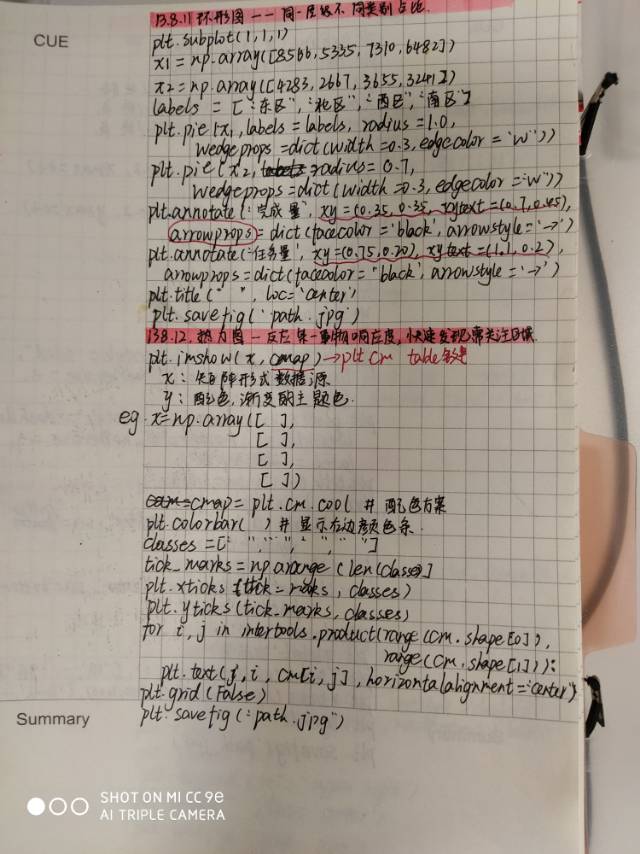 CUE
13.8.11 环形图——同一层级不同类别占比.
plt.subplot(1,1,1)
x1 = np.array([8566,5335,7310,6482])
x2 = np.array([4283,2667,3655,3241])
labels = ["东区","北区","西区","南区"]
plt.pie(x1,labels=labels, radius=1.0,
wedgeprops=dict(width=0.3,edgecolor="w"))
plt.pie(x2, radius=0.7,
wedgeprops=dict(width=0.3,edgecolor="w"))
plt.annotate('完成量', xy=(0.35,0.35, xytext=(0.7,0.45),
arrowprops=dict(facecolor='black', arrowstyle='->')
plt.annotate('任务量', xy=(0.75,0.20), xytext=(1.1,0.2),
arrowprops=dict(facecolor="black', arrowstyle='->')
plt.title(" ", loc='center')
plt.savefig('path.jpg')
13.8.12. 热力图—反应某一事物响应度,快速发现需关注区域
plt.imshow(x, cmap)→plt cm table
x: 矩阵形式数据源
y: 配色,渐变的主题色.
eg x=np.array([[ ],
[ ],
[ ],
[ ])
cmap = plt.cm.cool # 配色方案
plt.colorbar( ) # 显示右边颜色条.
classes =[" "," "," "," "]
tick_marks = np.arange(len(classes)]
plt.xticks(tick-marks, classes)
plt.yticks(tick.marks, classes)
for i,j in intertools.product(range(cm.shape[0]),
range(cm.shape[1])):
plt.text(j, i, cm[i,j], horizontalalignment="center")
plt.grid(False)
plt.savefig("path.jpg")
Summary
SHOT ON MI CC 9e
AI TRIPLE CAMERA